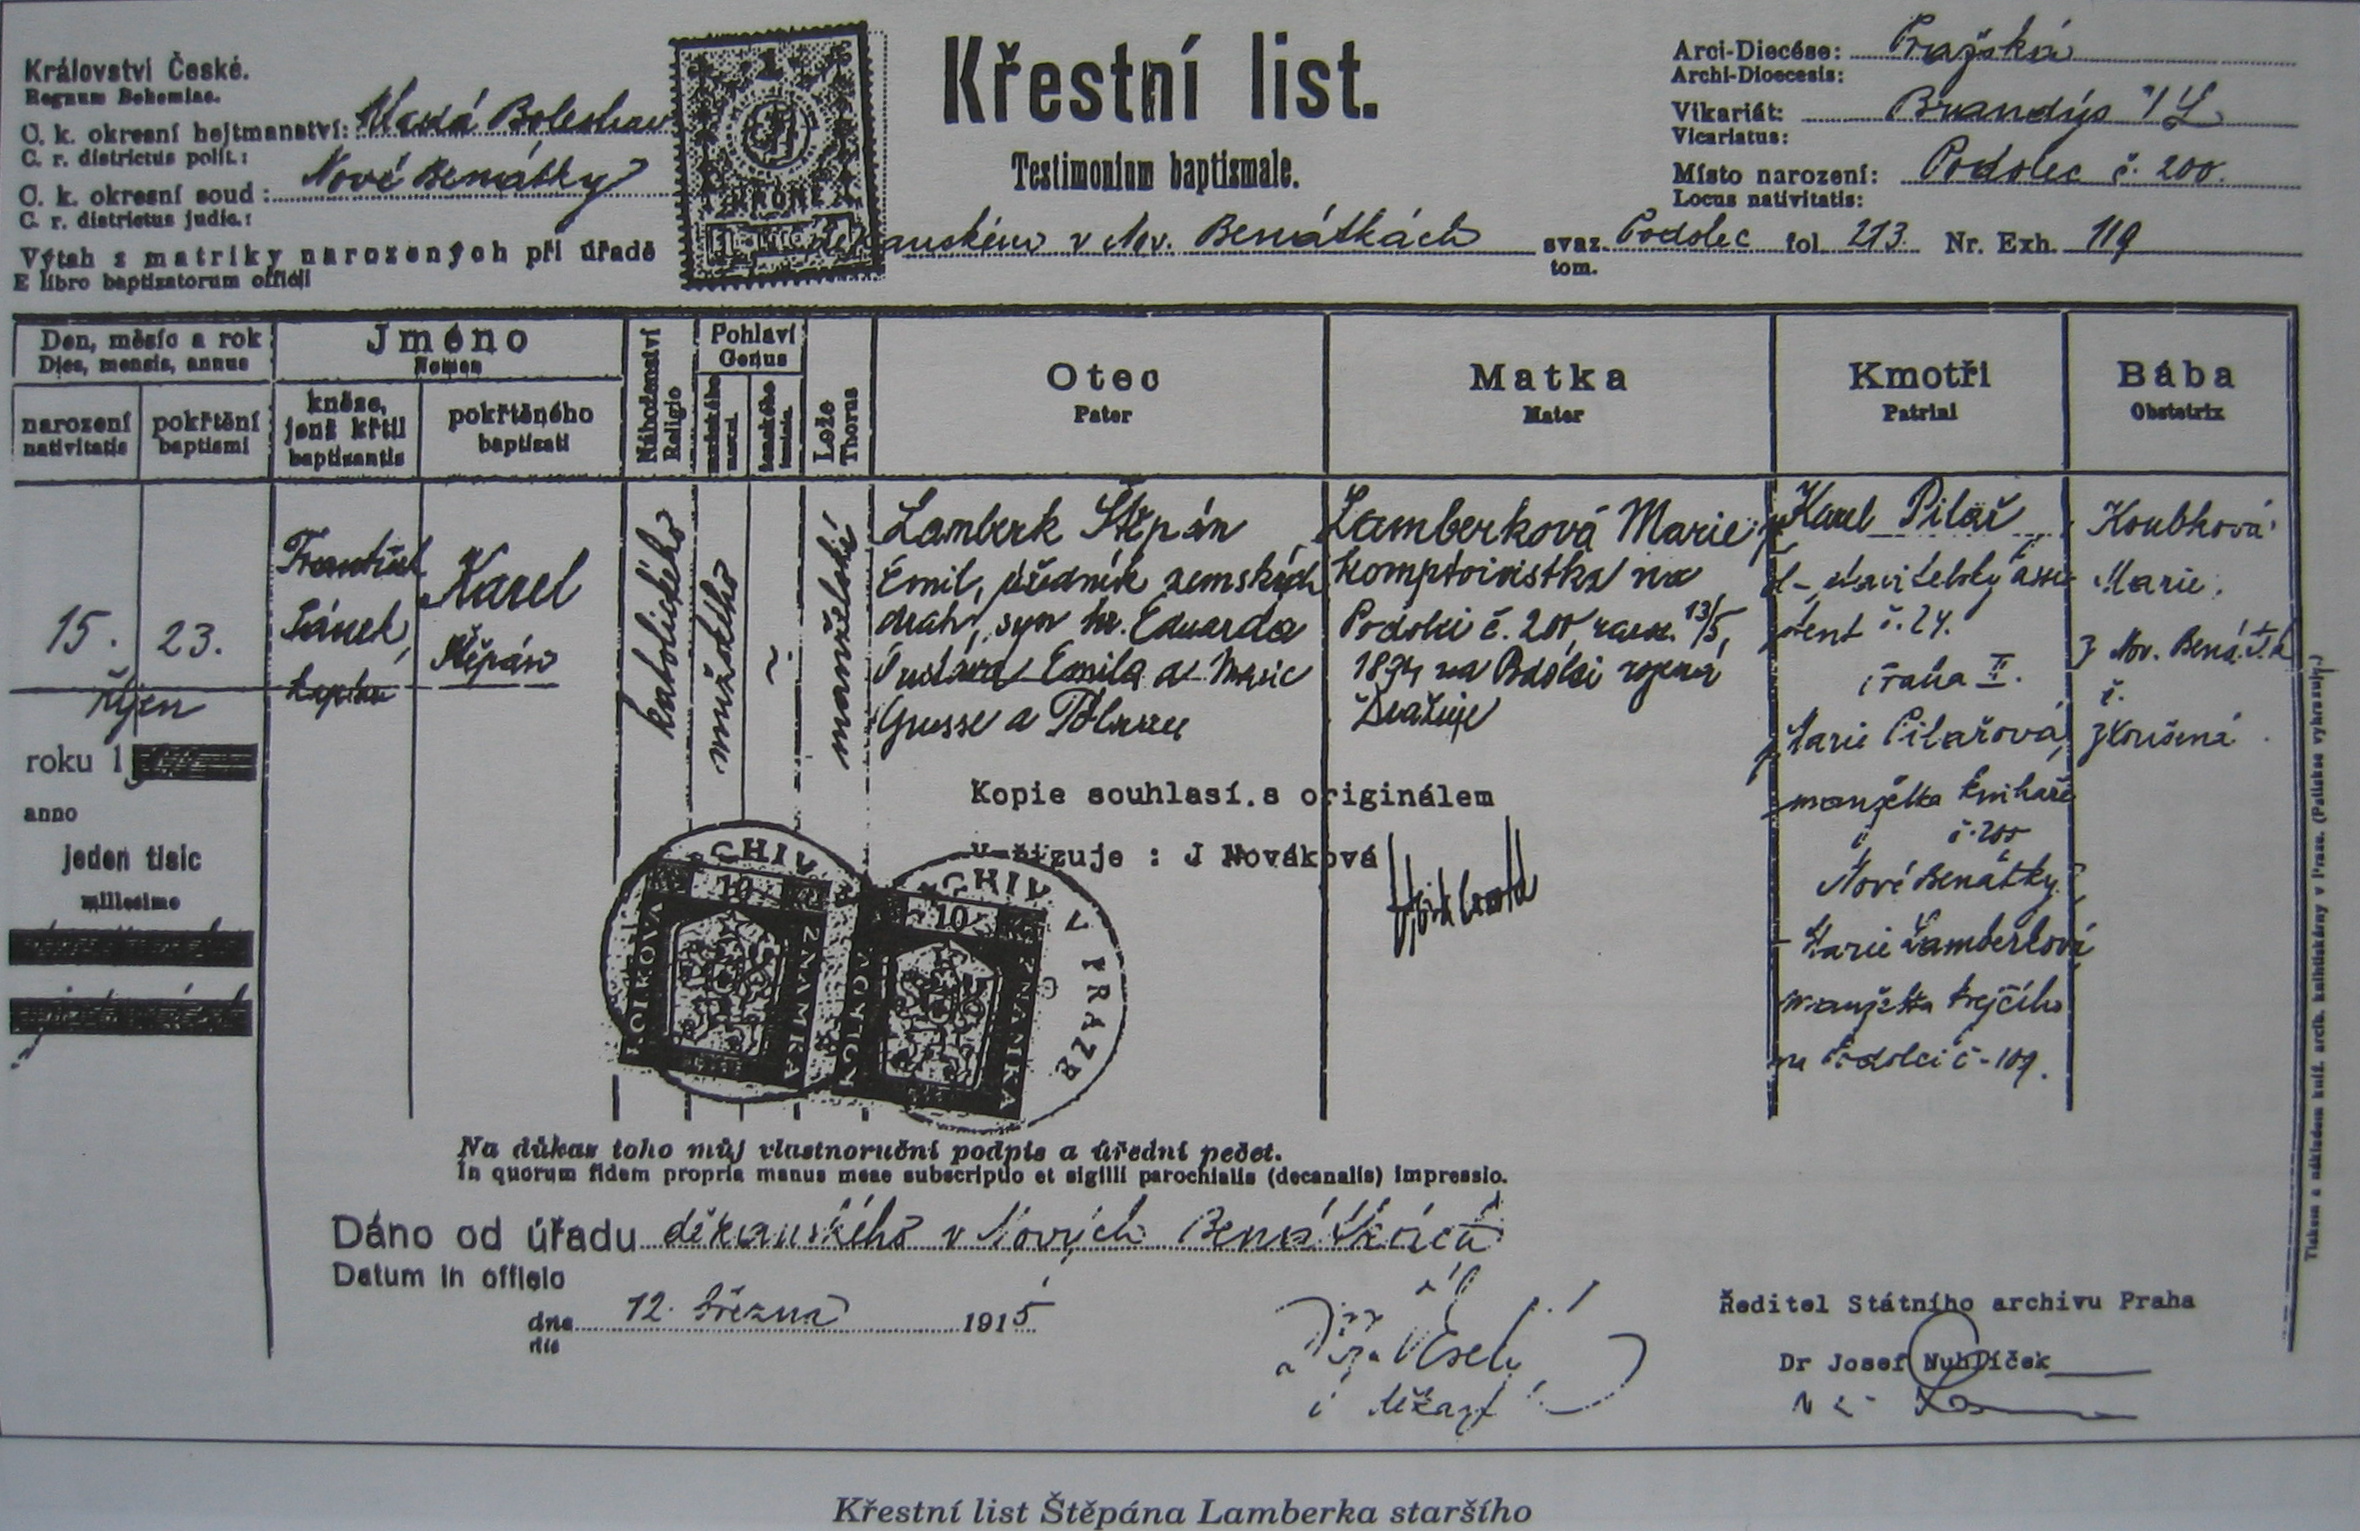 Království České.
Regnum Bohemiae.
C. k. okresní hejtmanství: Mladá Boleslav
C. r. districtus polit.:
C. k. okresní soud: Nové Benátky
C. r. districtus judic.:
Výtah z matriky narozených při úřadě děkanském v Nov. Benátkách svaz. Podolec fol. 213. Nr. Exh. 119
E libro baptizatorum officii tom.
1
KRONE
Křestní list.
Testimonium baptismale.
Arci-Diecése: Pražská
Archi-Dioecesis:
Vikariát: Brandýs n/L
Vicariatus:
Místo narození: Podolec č. 200.
Locus nativitatis:
Den, měsíc a rok
Dies, mensis, annus
narození
nativitatis
pokřtění
baptismi
Jméno
Nomen
kněze,
jenž křtil
baptizantis
pokřtěného
baptizati
Náboženství
Religio
Pohlaví
Genus
mužského
ženského
Lože
Thorus
Otec
Pater
Matka
Mater
Kmotři
Patrini
Bába
Obstetrix
15.
23.
říjen
roku 1
anno
jeden tisíc
millesimo
František
kaplan
Karel
Štěpán
katolického
mužského
manželské
Lamberk Štěpán
Emil, úředník zemských
drah, syn hr. Eduarda
Gustava Emila a Marie
Lamberková Marie
Komptoiristka na
Podolci č. 200, naroz. 13/5
1894 na Podolci
Karel Pilař
stavitelský assi-
stent č. 24.
Praha II.
Marie Pilařová,
manželka knihaře
č. 200
Nové Benátky
Marie Lamberková
manželka krejčího
na Podolci č. 109.
Koubková
Marie,
z Nov. Benátek
č.
zkoušená
Kopie souhlasí s originálem
Vyřizuje : J Nováková
ARCHIV V PRAZE
10 Kčs
KOLKOVÁ ZNÁMKA
Na důkaz toho můj vlastnoruční podpis a úřední pečeť.
In quorum fidem propria manus meae subscriptio et sigilli parochialis (decanalis) impressio.
Dáno od úřadu děkanského v Nových Benátkách
Datum in officio
dne 12. března 1915
die
Veselý
děkan
Ředitel Státního archivu Praha
Dr Josef Nuhlíček
Tiskem a nákladem kníž. arcib. knihtiskárny v Praze. (Patisk vyhrazují.)
Křestní list Štěpána Lamberka staršího